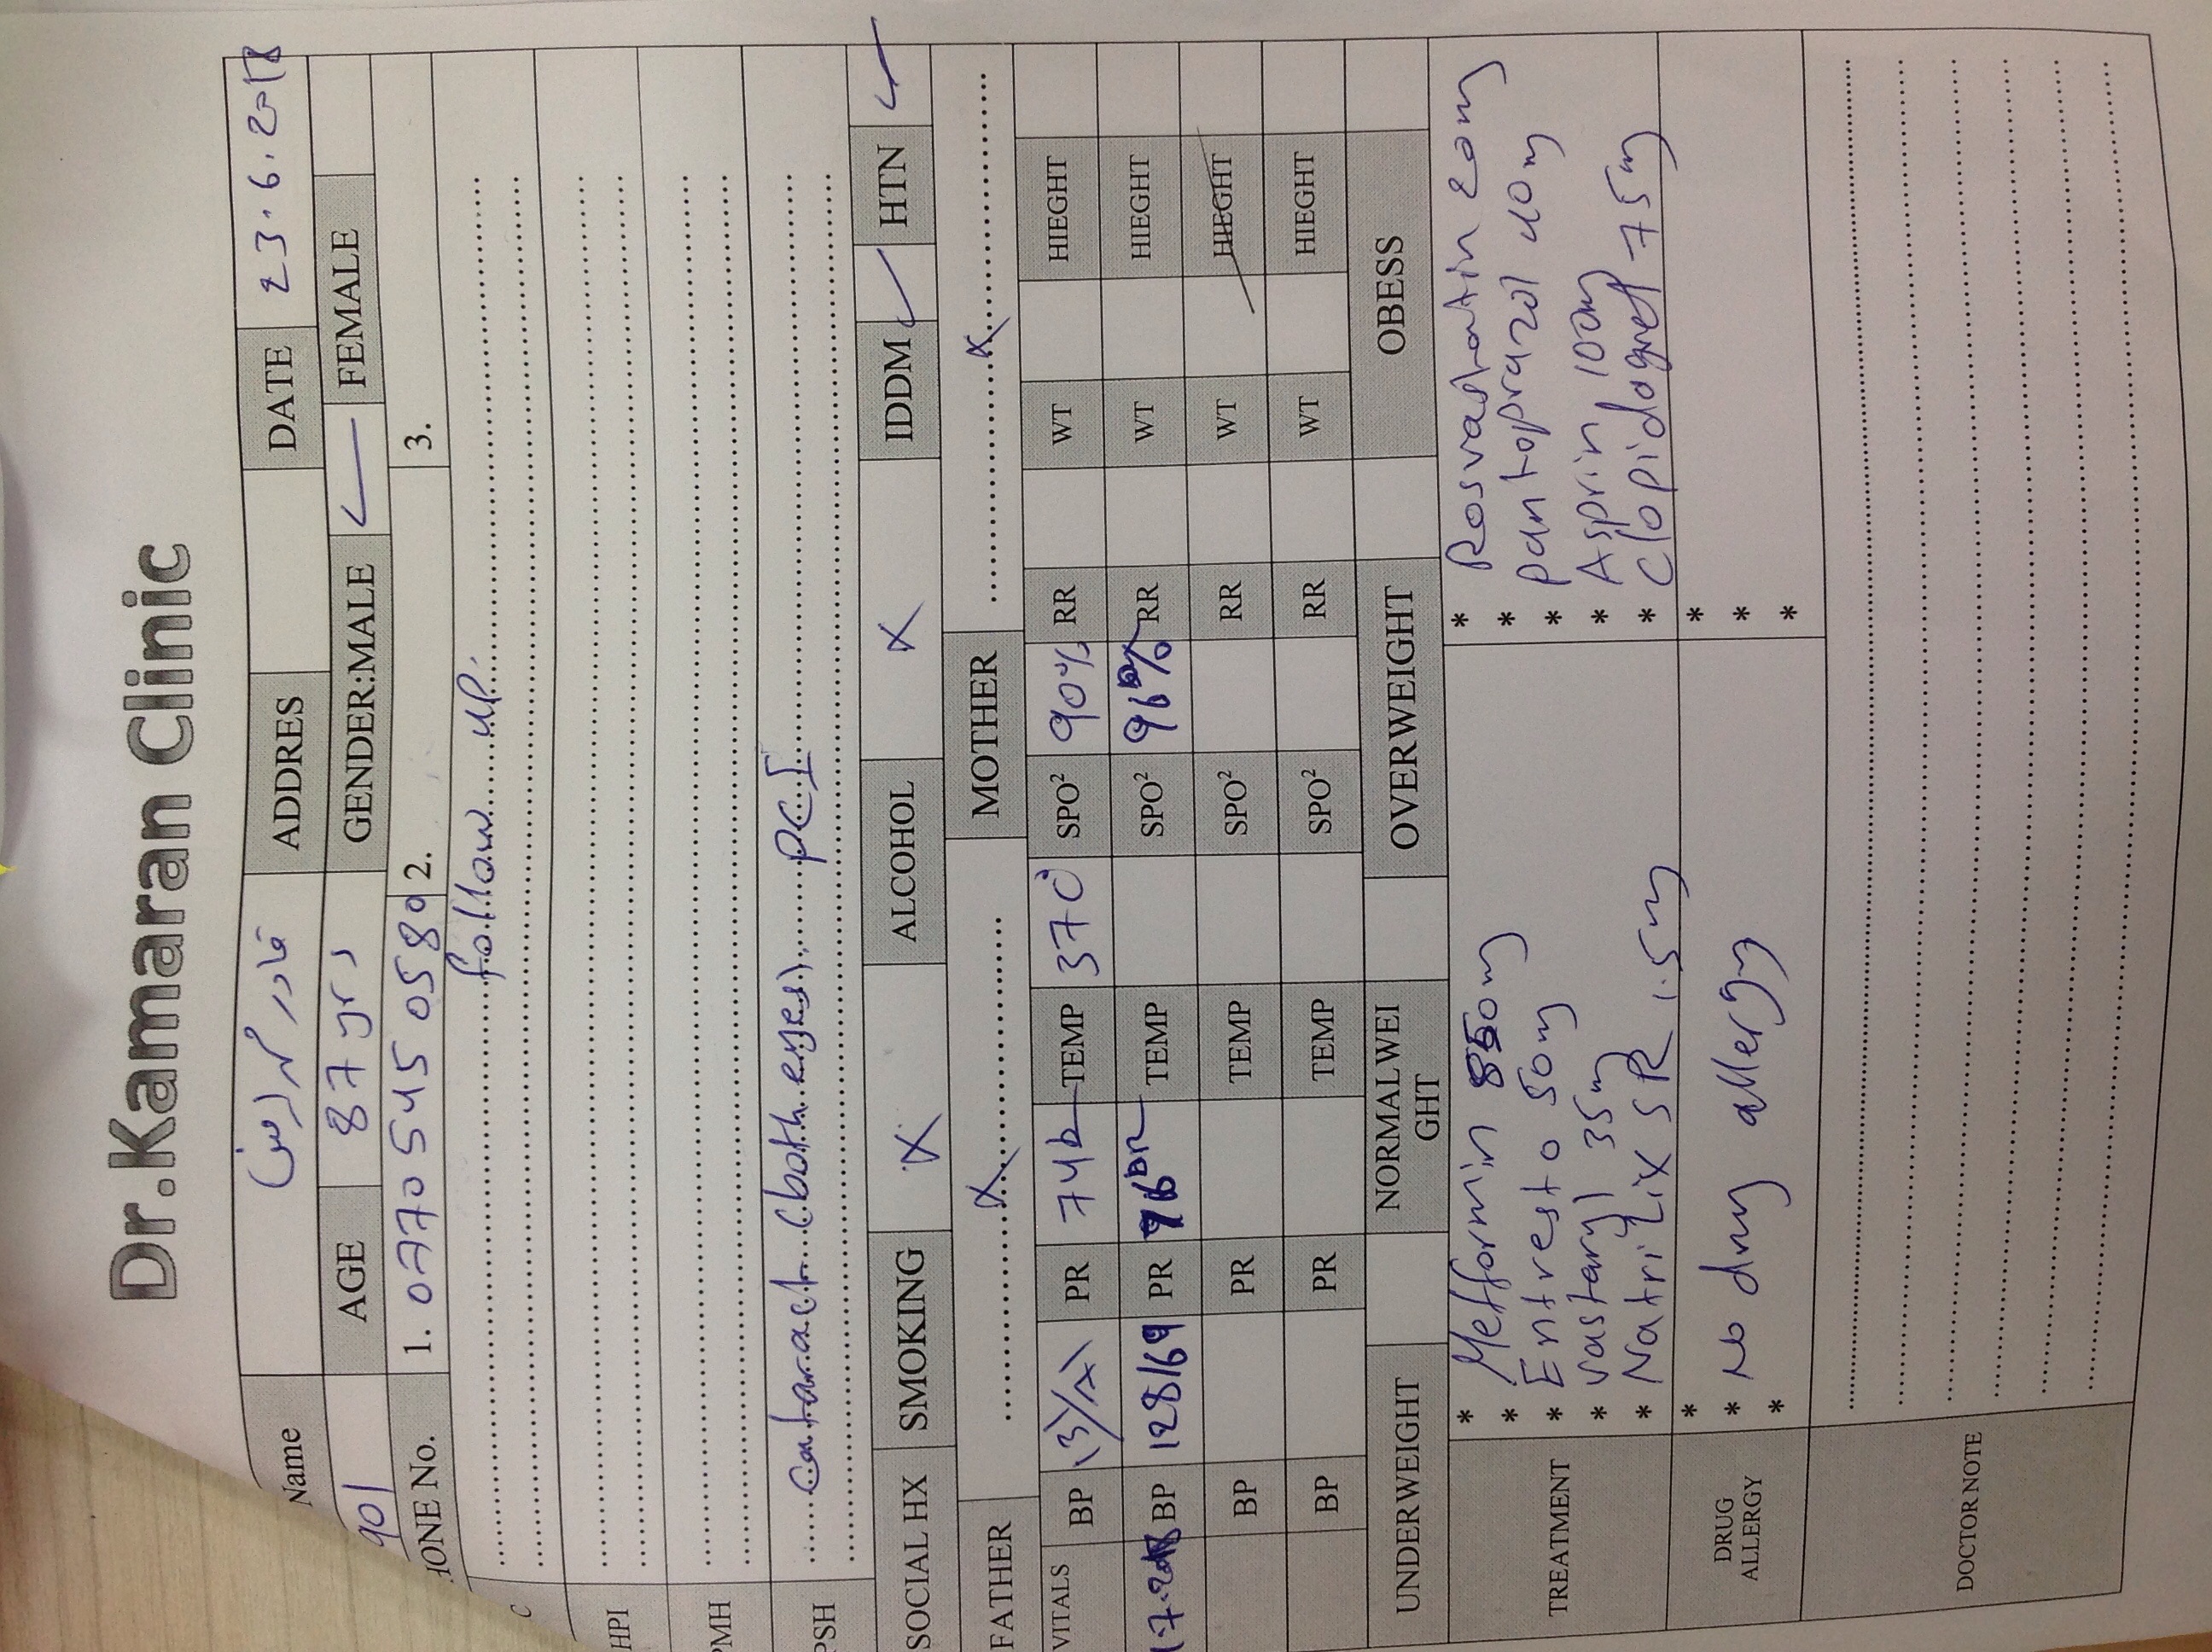 Dr.Kamaran Clinic
Name قادر ADDRES DATE 23.6.2018
901 AGE 87 yrs GENDER:MALE FEMALE
HONE No. 1. 0770 545 0580 2. 3.
C follow up.
HPI
PMH
PSH Cataract (both eyes). PCI
SOCIAL HX SMOKING X ALCOHOL X IDDM ✓ HTN ✓
FATHER X MOTHER X
VITALS BP PR 74b TEMP 37C° SPO² 90% RR WT HIEGHT
BP 128/69 PR TEMP SPO² 96% RR WT HIEGHT
BP PR TEMP SPO² RR WT HIEGHT
BP PR TEMP SPO² RR WT HIEGHT
UNDERWEIGHT NORMAL WEI
GHT OVERWEIGHT OBESS
TREATMENT
* Metformin 850mg
* Entresto 50mg
* vastaryl 35mg
* Natrilix SR 1.5mg
*
* Rosvastatin 20mg
* pantoprazol 40mg
* Asprin 100mg
* Clopidogrel 75mg
*
DRUG
ALLERGY
*
* No drug allergy
*
*
*
*
DOCTOR NOTE